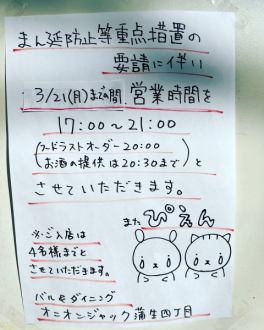 まん延防止等重点措置の
要請に伴い
3/21(月)までの間、営業時間を
17:00〜21:00
(フードラストオーダー20:00
(お酒の提供は20:30まで)と
させていただきます。
また ぴえん
※ご入店は
4名様までと
させていただきます。
バル&ダイニング
オニオンジャック蒲生四丁目